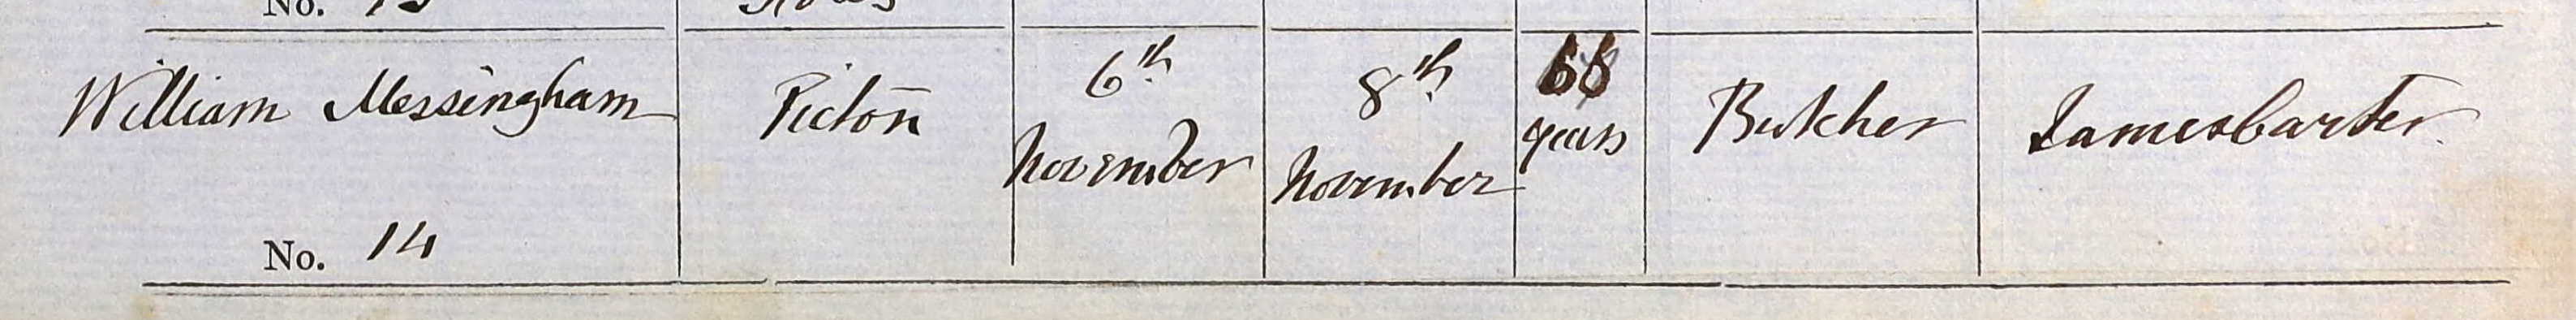 No.
William Messingham Picton 6th November 8th November years Butcher James Carter.
No. 14